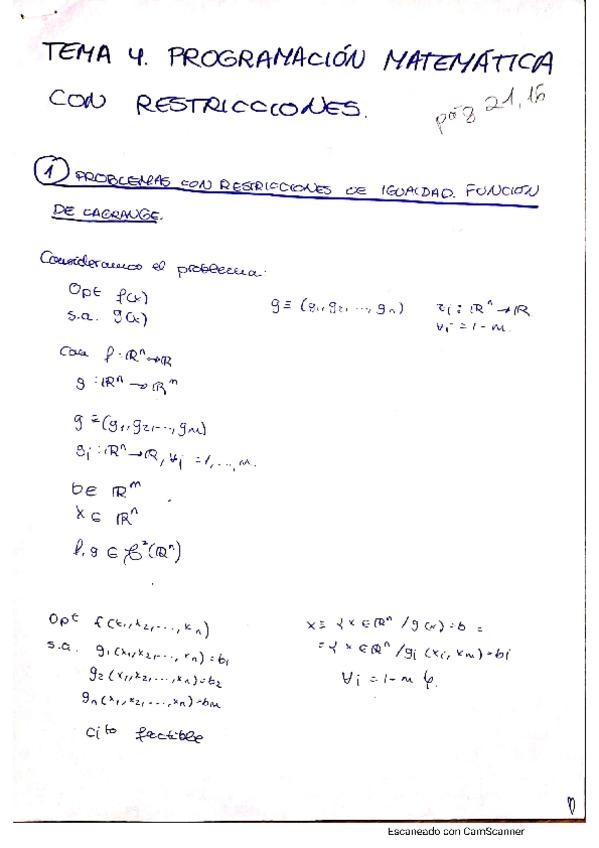 TEMA 4. PROGRAMACIÓN MATEMÁTICA
CON RESTRICCIONES.
pág 21,15
1 PROBLEMAS CON RESTRICCIONES DE IGUALDAD. FUNCIÓN
DE LAGRANGE.
Consideramos el problema:
Opt f(x)
s.a. g(x)
g ≡ (g₁, g₂, ..., gn)
: ℝⁿ → ℝ
∀i = 1-m.
Con f: ℝⁿ → ℝ
g: ℝⁿ → ℝᵐ
g ≡ (g₁, g₂, ..., gm)
gi: ℝⁿ → ℝ, ∀i = 1, ..., m.
b ∈ ℝᵐ
x ∈ ℝⁿ
f, g ∈ 𝒞²(ℝⁿ)
Opt f(x₁, x₂, ..., xn)
s.a. g₁(x₁, x₂, ..., xn) = b₁
g₂(x₁, x₂, ..., xn) = b₂
gn(x₁, x₂, ..., xn) = bm
cjto factible
x ≡ { x ∈ ℝⁿ / g(x) = b =
= { x ∈ ℝⁿ / gi (xi, xm) = bi
∀i = 1-m }.
Escaneado con CamScanner